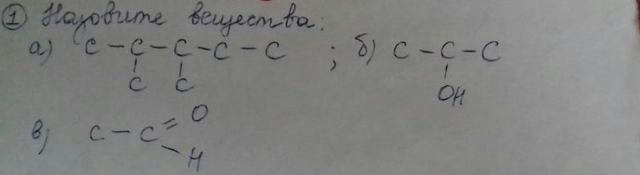 ① Назовите вещества:
а) C – C – C – C – C ; б) C – C – C
C C OH
в) C – C = O
– H